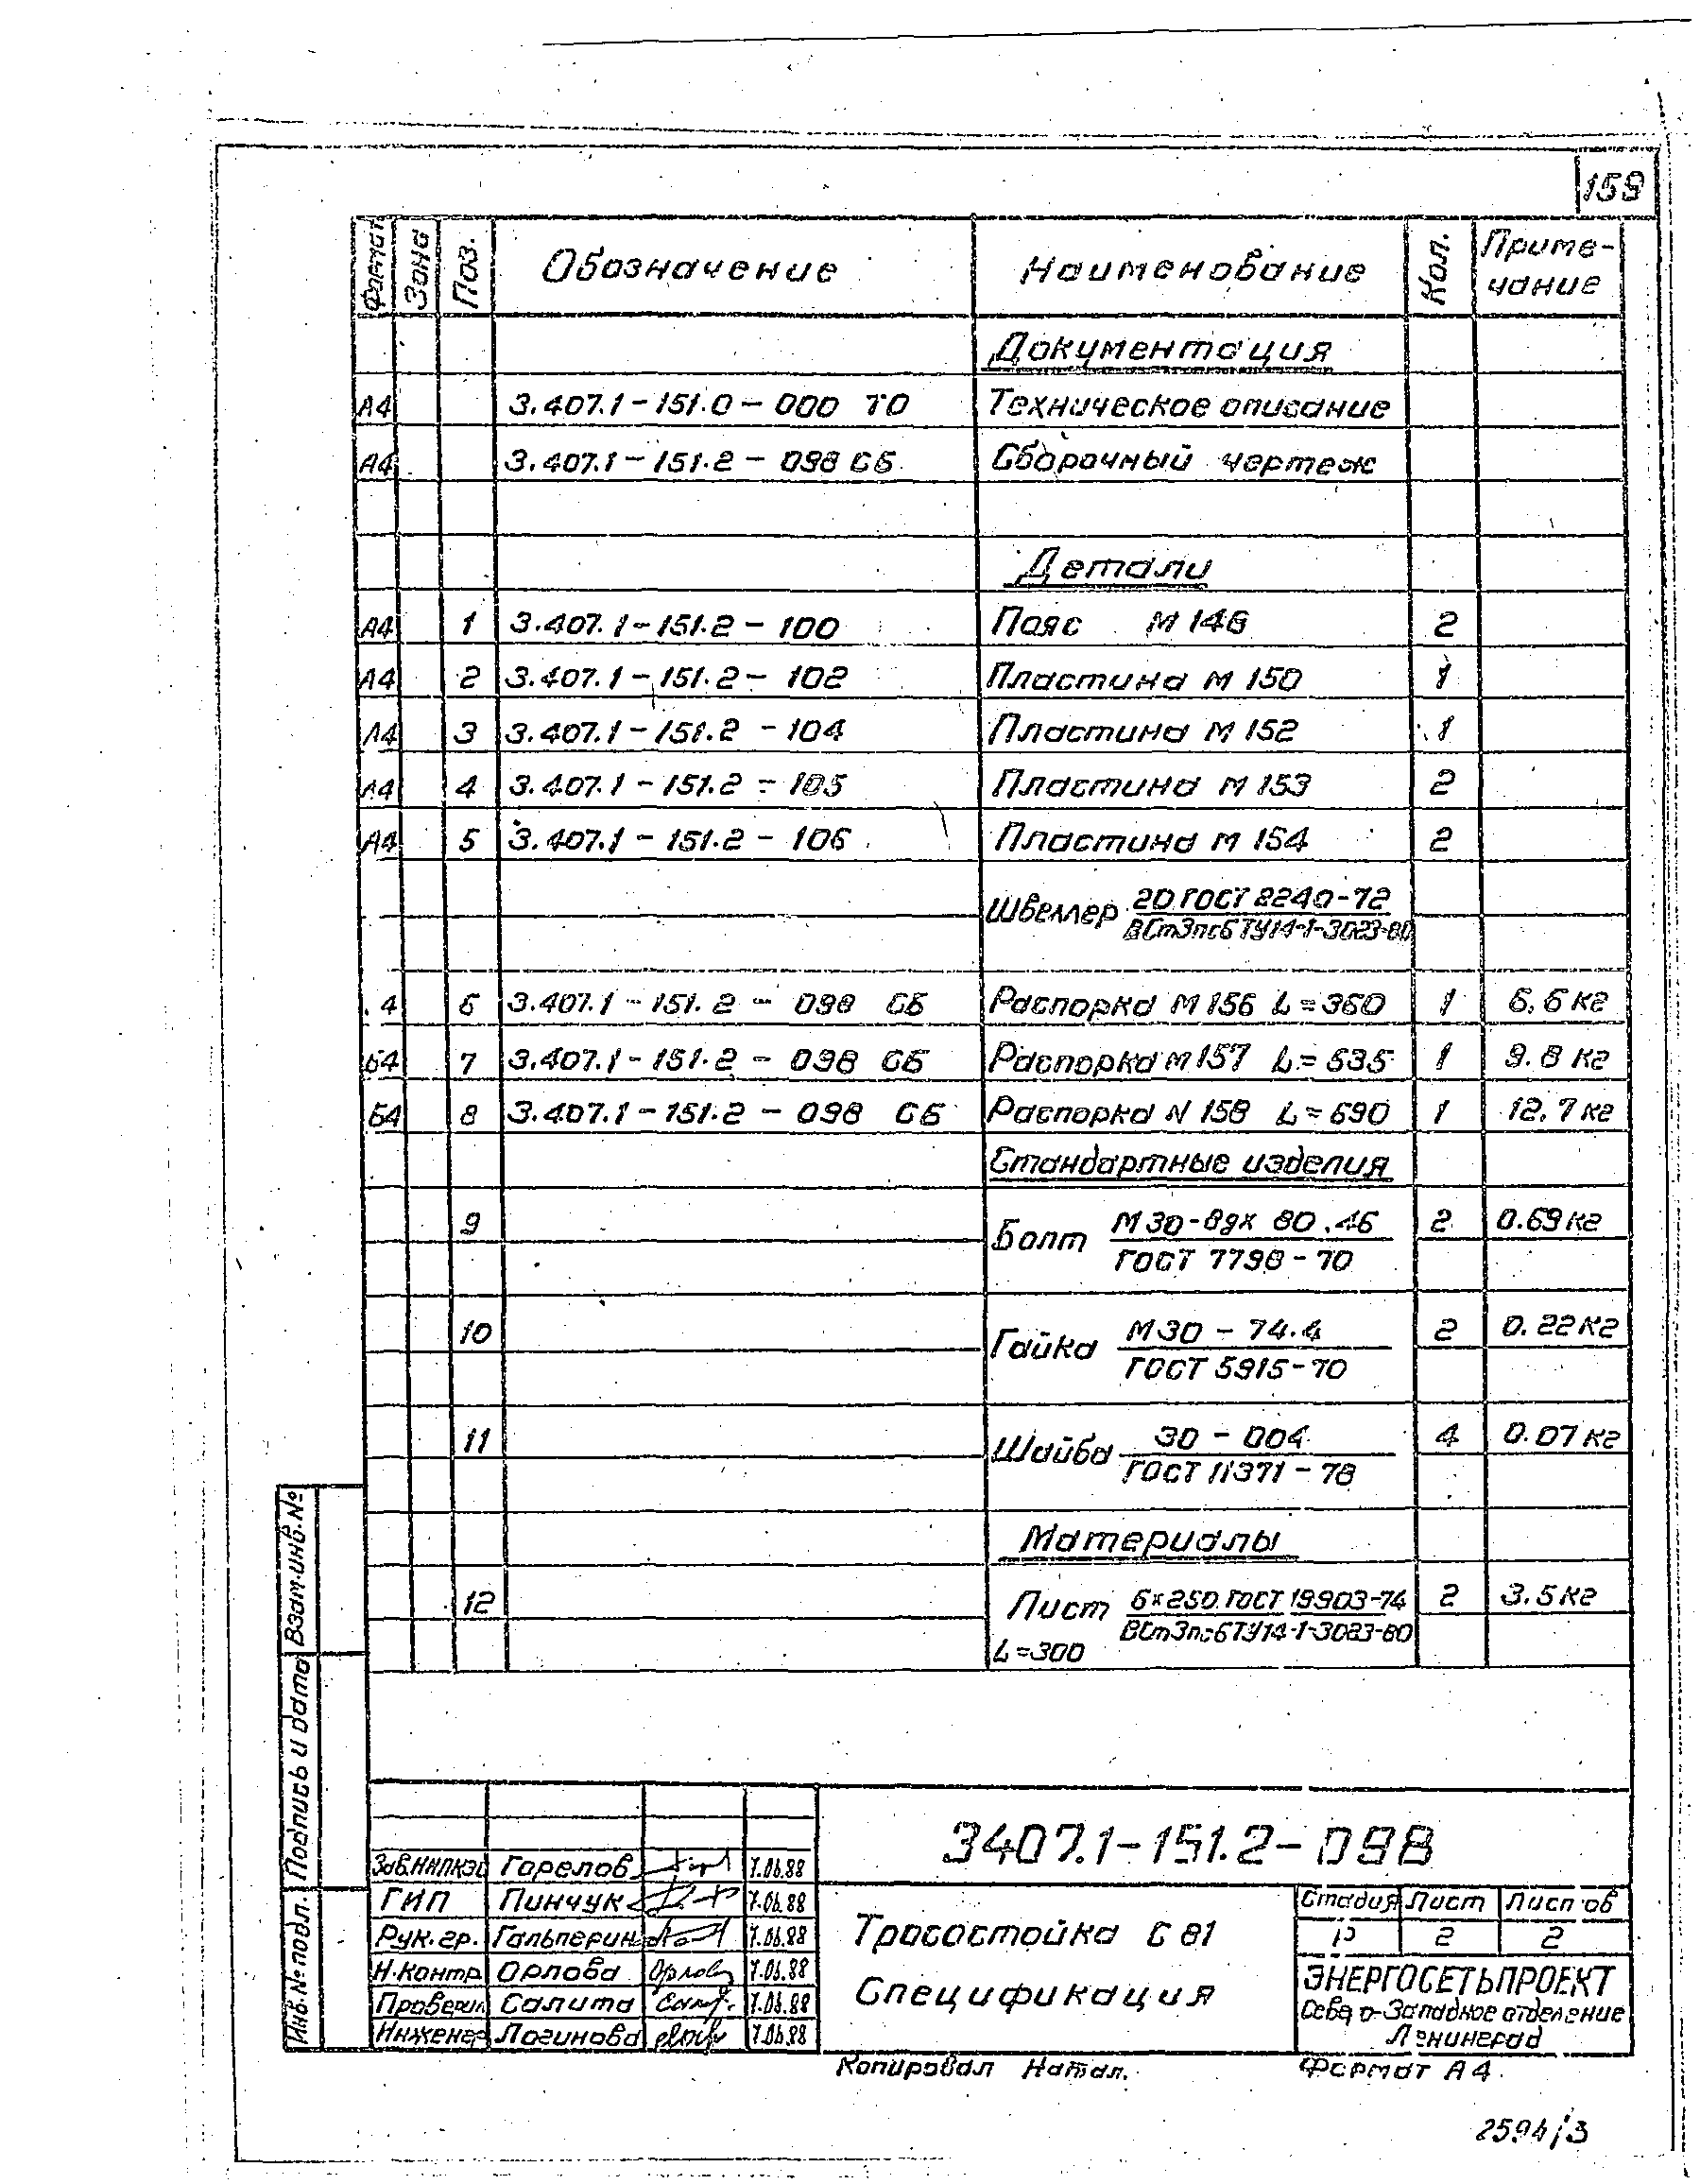 159
Формат Зона Поз. Обозначение Наименование Кол. Приме-
чание
Документация
А4 3.407.1-151.0-000 ТО Техническое описание
А4 3.407.1-151.2-098 СБ Сборочный чертеж
Детали
А4 1 3.407.1-151.2-100 Пояс М 146 2
А4 2 3.407.1-151.2-102 Пластина М 150 1
А4 3 3.407.1-151.2-104 Пластина М 152 1
А4 4 3.407.1-151.2-105 Пластина М 153 2
А4 5 3.407.1-151.2-106 Пластина М 154 2
Швеллер 20 ГОСТ 8240-72
ВСт3пс6 ТУ14-1-3023-80
4 6 3.407.1-151.2-098 СБ Распорка М 156 L=360 1 6.6 кг
Б4 7 3.407.1-151.2-098 СБ Распорка М 157 L=535 1 9.8 кг
Б4 8 3.407.1-151.2-098 СБ Распорка М 158 L=690 1 12.7 кг
Стандартные изделия
9 Болт М30-8gх 80.46 2 0.69 кг
ГОСТ 7798-70
10 Гайка М30-7Н.4 2 0.22 кг
ГОСТ 5915-70
11 Шайба 30-004 4 0.07 кг
ГОСТ 11371-78
Материалы
12 Лист 6х250 ГОСТ 19903-74 2 3.5 кг
ВСт3пс6 ТУ14-1-3023-80
L=300
Взам.инв.№
Подпись и дата
Инв.№ подл.
3.407.1-151.2-098
Зав.НИЛКЭС Горелов 7.06.88
ГИП Пинчук 7.06.88
Рук.гр. Гальперин 7.06.88
Н.контр Орлова Орлову 7.06.88
Проверил Салита 7.06.88
Инженер Логинова 7.06.88
Тросостойка С 81
Спецификация
Стадия Лист Листов
Р 2 2
ЭНЕРГОСЕТЬПРОЕКТ
Северо-Западное отделение
Ленинград
Копировал Натал.
Формат А4
2594/3